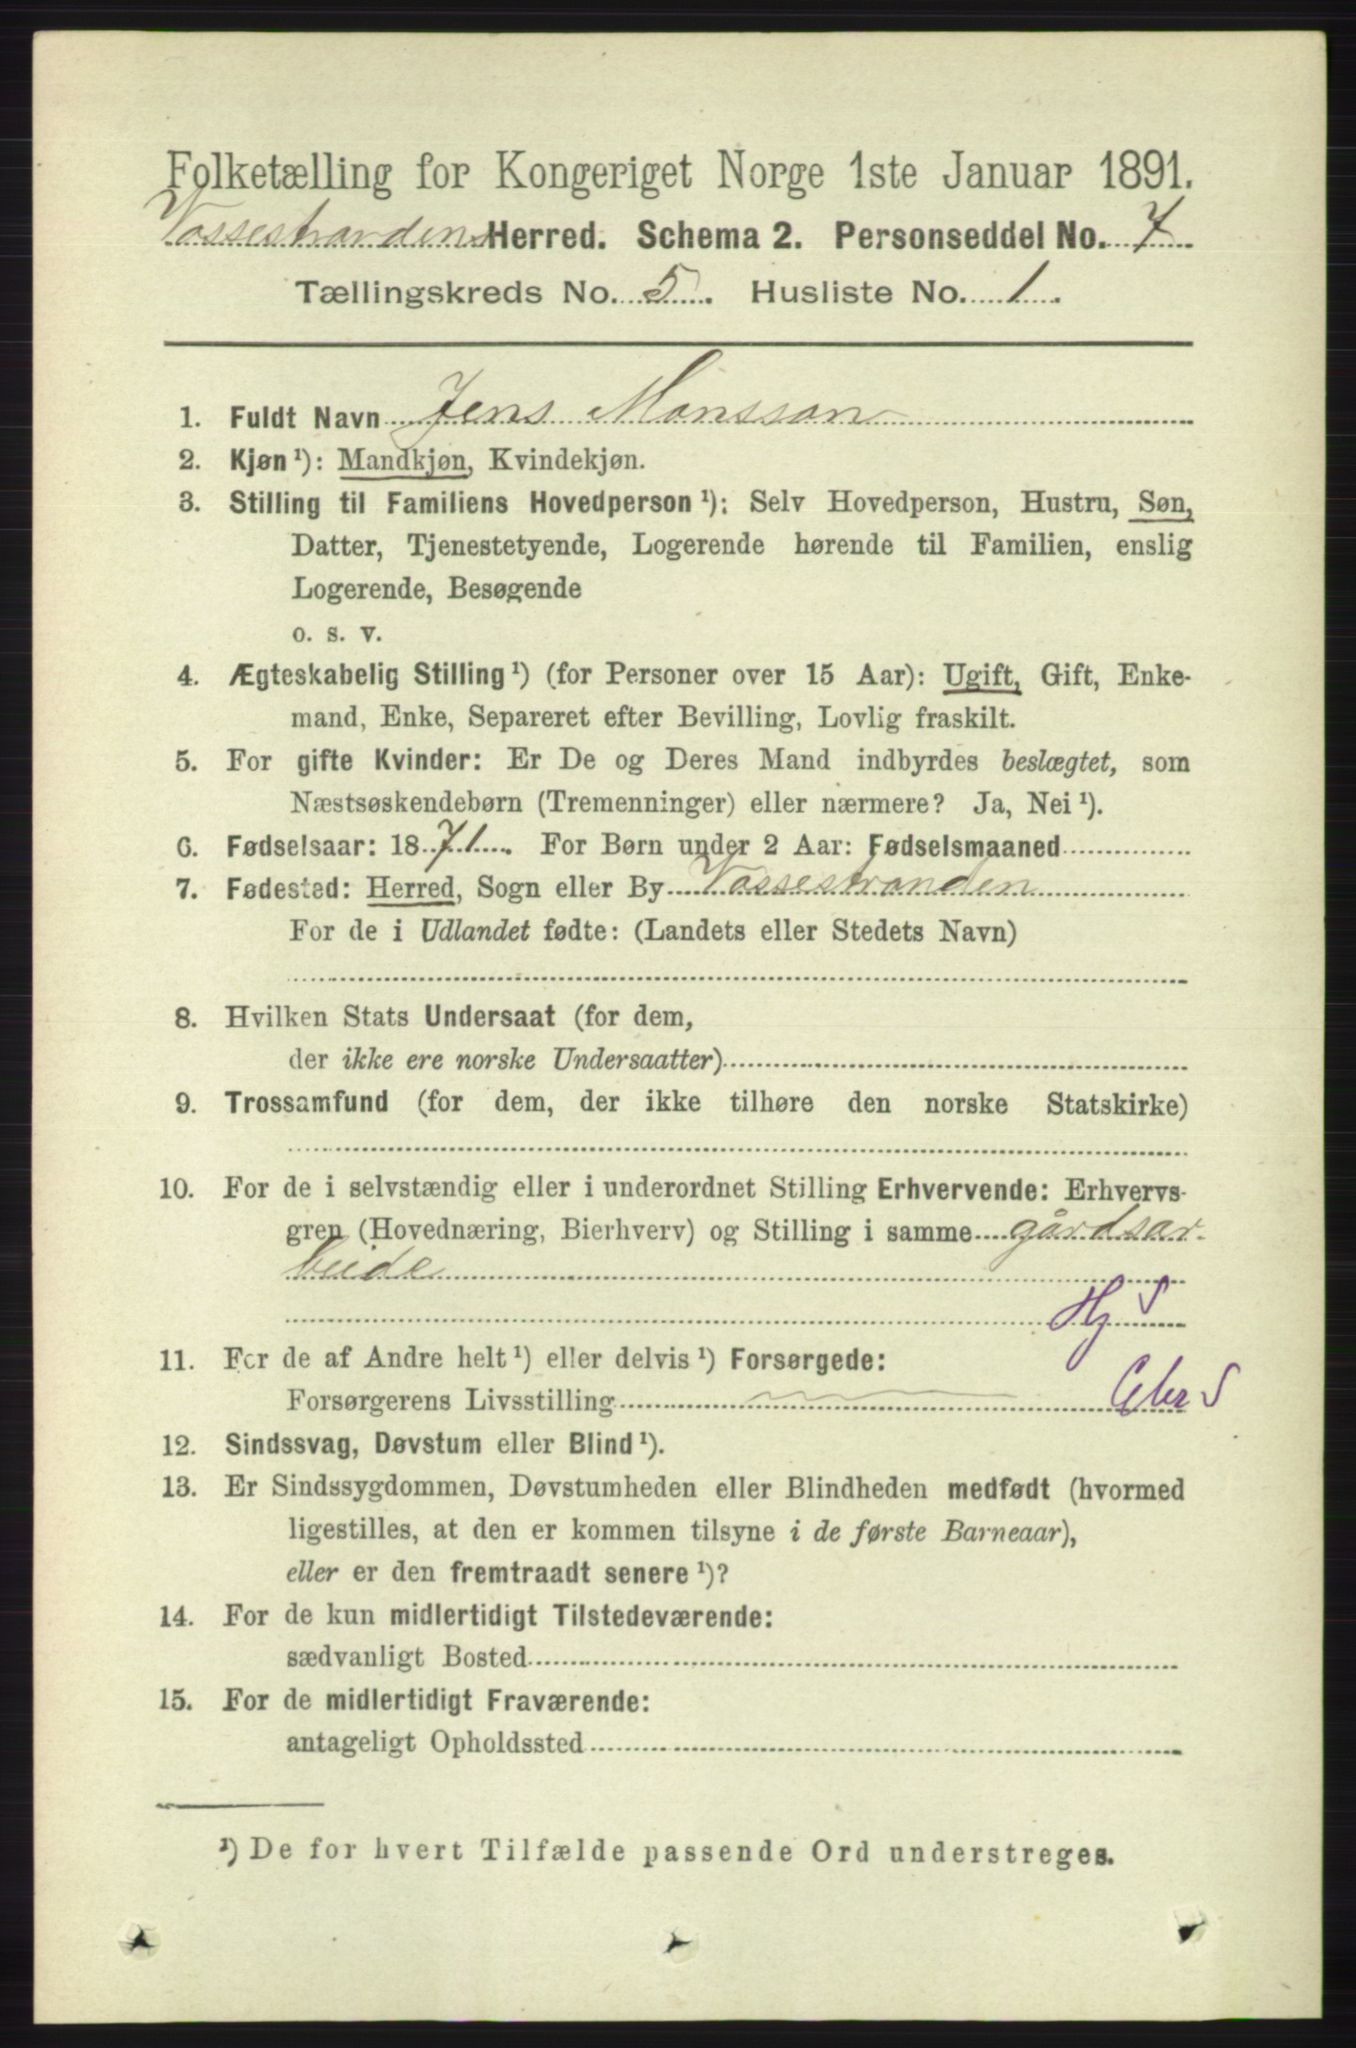 Folketælling for Kongeriget Norge 1ste Januar 1891.
Vossestrandens Herred. Schema 2. Personseddel No. 7
Tællingskreds No. 5. Husliste No. 1.
1. Fuldt Navn Jens Monsson
2. Kjøn ¹): Mandkjøn, Kvindekjøn.
3. Stilling til Familiens Hovedperson ¹): Selv Hovedperson, Hustru, Søn,
Datter, Tjenestetyende, Logerende hørende til Familien, enslig
Logerende, Besøgende
o. s. v.
4. Ægteskabelig Stilling ¹) (for Personer over 15 Aar): Ugift, Gift, Enke-
mand, Enke, Separeret efter Bevilling, Lovlig fraskilt.
5. For gifte Kvinder: Er De og Deres Mand indbyrdes beslægtet, som
Næstsøskendebørn (Tremenninger) eller nærmere? Ja, Nei ¹).
6. Fødselsaar: 1871. For Børn under 2 Aar: Fødselsmaaned
7. Fødested: Herred, Sogn eller By Vossestranden
For de i Udlandet fødte: (Landets eller Stedets Navn)
8. Hvilken Stats Undersaat (for dem,
der ikke ere norske Undersaatter)
9. Trossamfund (for dem, der ikke tilhøre den norske Statskirke)
10. For de i selvstændig eller i underordnet Stilling Erhvervende: Erhvervs-
gren (Hovednæring, Bierhverv) og Stilling i samme gårdsar
beide
Hj S
11. For de af Andre helt ¹) eller delvis ¹) Forsørgede:
Forsørgerens Livsstilling
12. Sindssvag, Døvstum eller Blind ¹).
13. Er Sindssygdommen, Døvstumheden eller Blindheden medfødt (hvormed
ligestilles, at den er kommen tilsyne i de første Barneaar),
eller er den fremtraadt senere ¹)?
14. For de kun midlertidigt Tilstedeværende:
sædvanligt Bosted
15. For de midlertidigt Fraværende:
antageligt Opholdssted
¹) De for hvert Tilfælde passende Ord understreges.